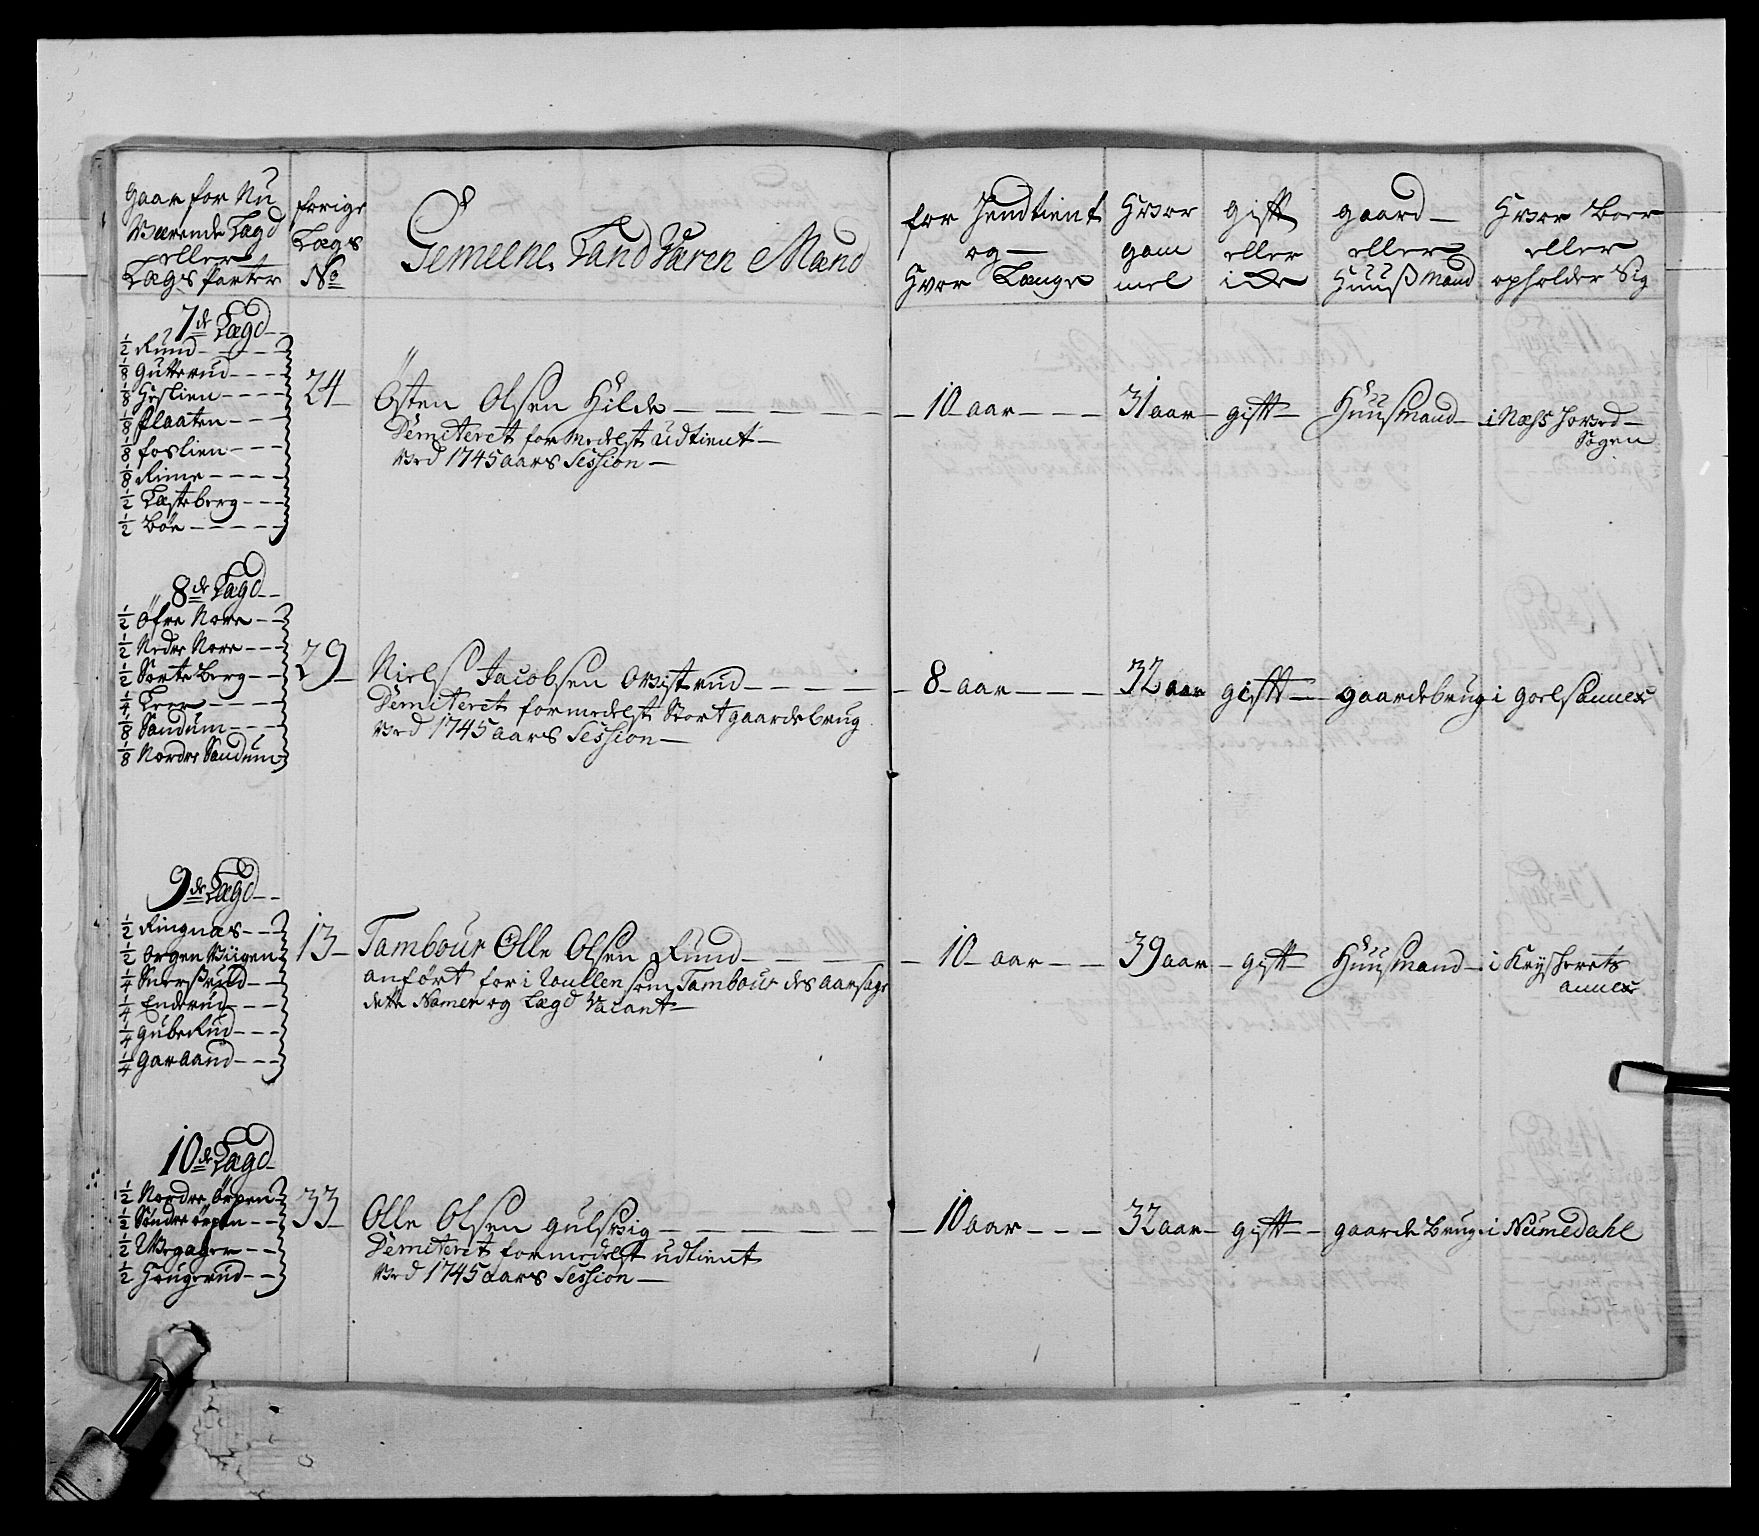 gaar for Nu
Værende Lægd
eller
Lægs Parter
forige
Lægs
No
Gemeene Land Væren Mand
for hendtient
og
Hvor Længe
Hvor
gam
mel
gift
eller
icke
gaard
eller
Huuß Mand
Hvor Boer
eller
opholder Sig
7de Lægd
1/2 Rund
1/8 Gutterud
1/8 Heslien
1/8 Plaaten
1/8 foslien
1/8 Rime
1/2 Læsteberg
1/2 Böe
24
Östen Olsen Hilde
Demiteret formedelst udtient
ved 1745 aars Session
10 aar
31 aar
gift
Huusmand
i Næss hoved
Sogen
8de Lægd
1/2 Öfre Nore
1/2 Nedre Nore
1/2 Sorteberg
1/4 Leer
1/8 Sandum
1/8 Nordre Sandum
29
Niels Jacobsen Qvistrud
Demiteret formedelst Stort gaardebrug
ved 1745 aars Session
8 aar
32 aar
gift
gaardebrug
i Goels annex
9de Lægd
1/2 Ringnæs
1/2 Ørgen Viigen
1/4 Snersrud
1/4 Enderud
1/4 Guberud
1/4 Garaand
13
Tambour Olle Olsen Rund
anfört for i Roullen som Tambour des aarsage
dette Namer og Lægd Vacant
10 aar
39 aar
gift
Huusmand
i Krysherets
annex
10de Lægd
1/2 Nordre Örpen
1/2 Söndre örpen
1/2 Vegager
1/2 Hougerud
33
Olle Olsen gulsvig
Demiteret formedelst udtient
ved 1745 aars Session
10 aar
32 aar
gift
gaarde brug
i Numedahl